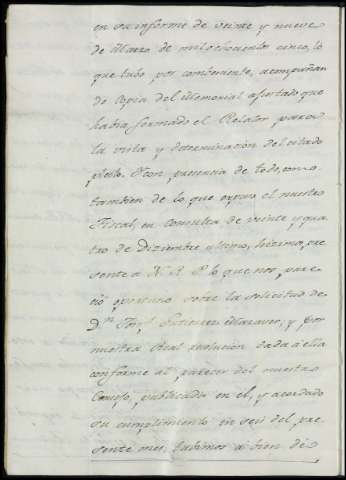 en su informe de veinte y nueve
de Marzo de mil ochocientos cinco, lo
que tubo por combeniente, acompañan
do copia del Memorial ajustado que
había formado el Relator para
la vista y determinacion del citado
pleito. Y con presencia de todo, como
tambien de lo que expuso el nuestro
Fiscal, en consulta de veinte y qua
tro de Diziembre ultimo, hicimos pre
sente a N. R. P. lo que nos pare
ció oportuno sobre la solicitud de
Dn. Josef Gutierrez Maraver, y por
nuestra Real resolucion dada a ella
conforme al parecer del nuestro
Consejo, publicada en el, y acordado
su cumplimiento en seis del pre
sente mes, tubimos a bien de